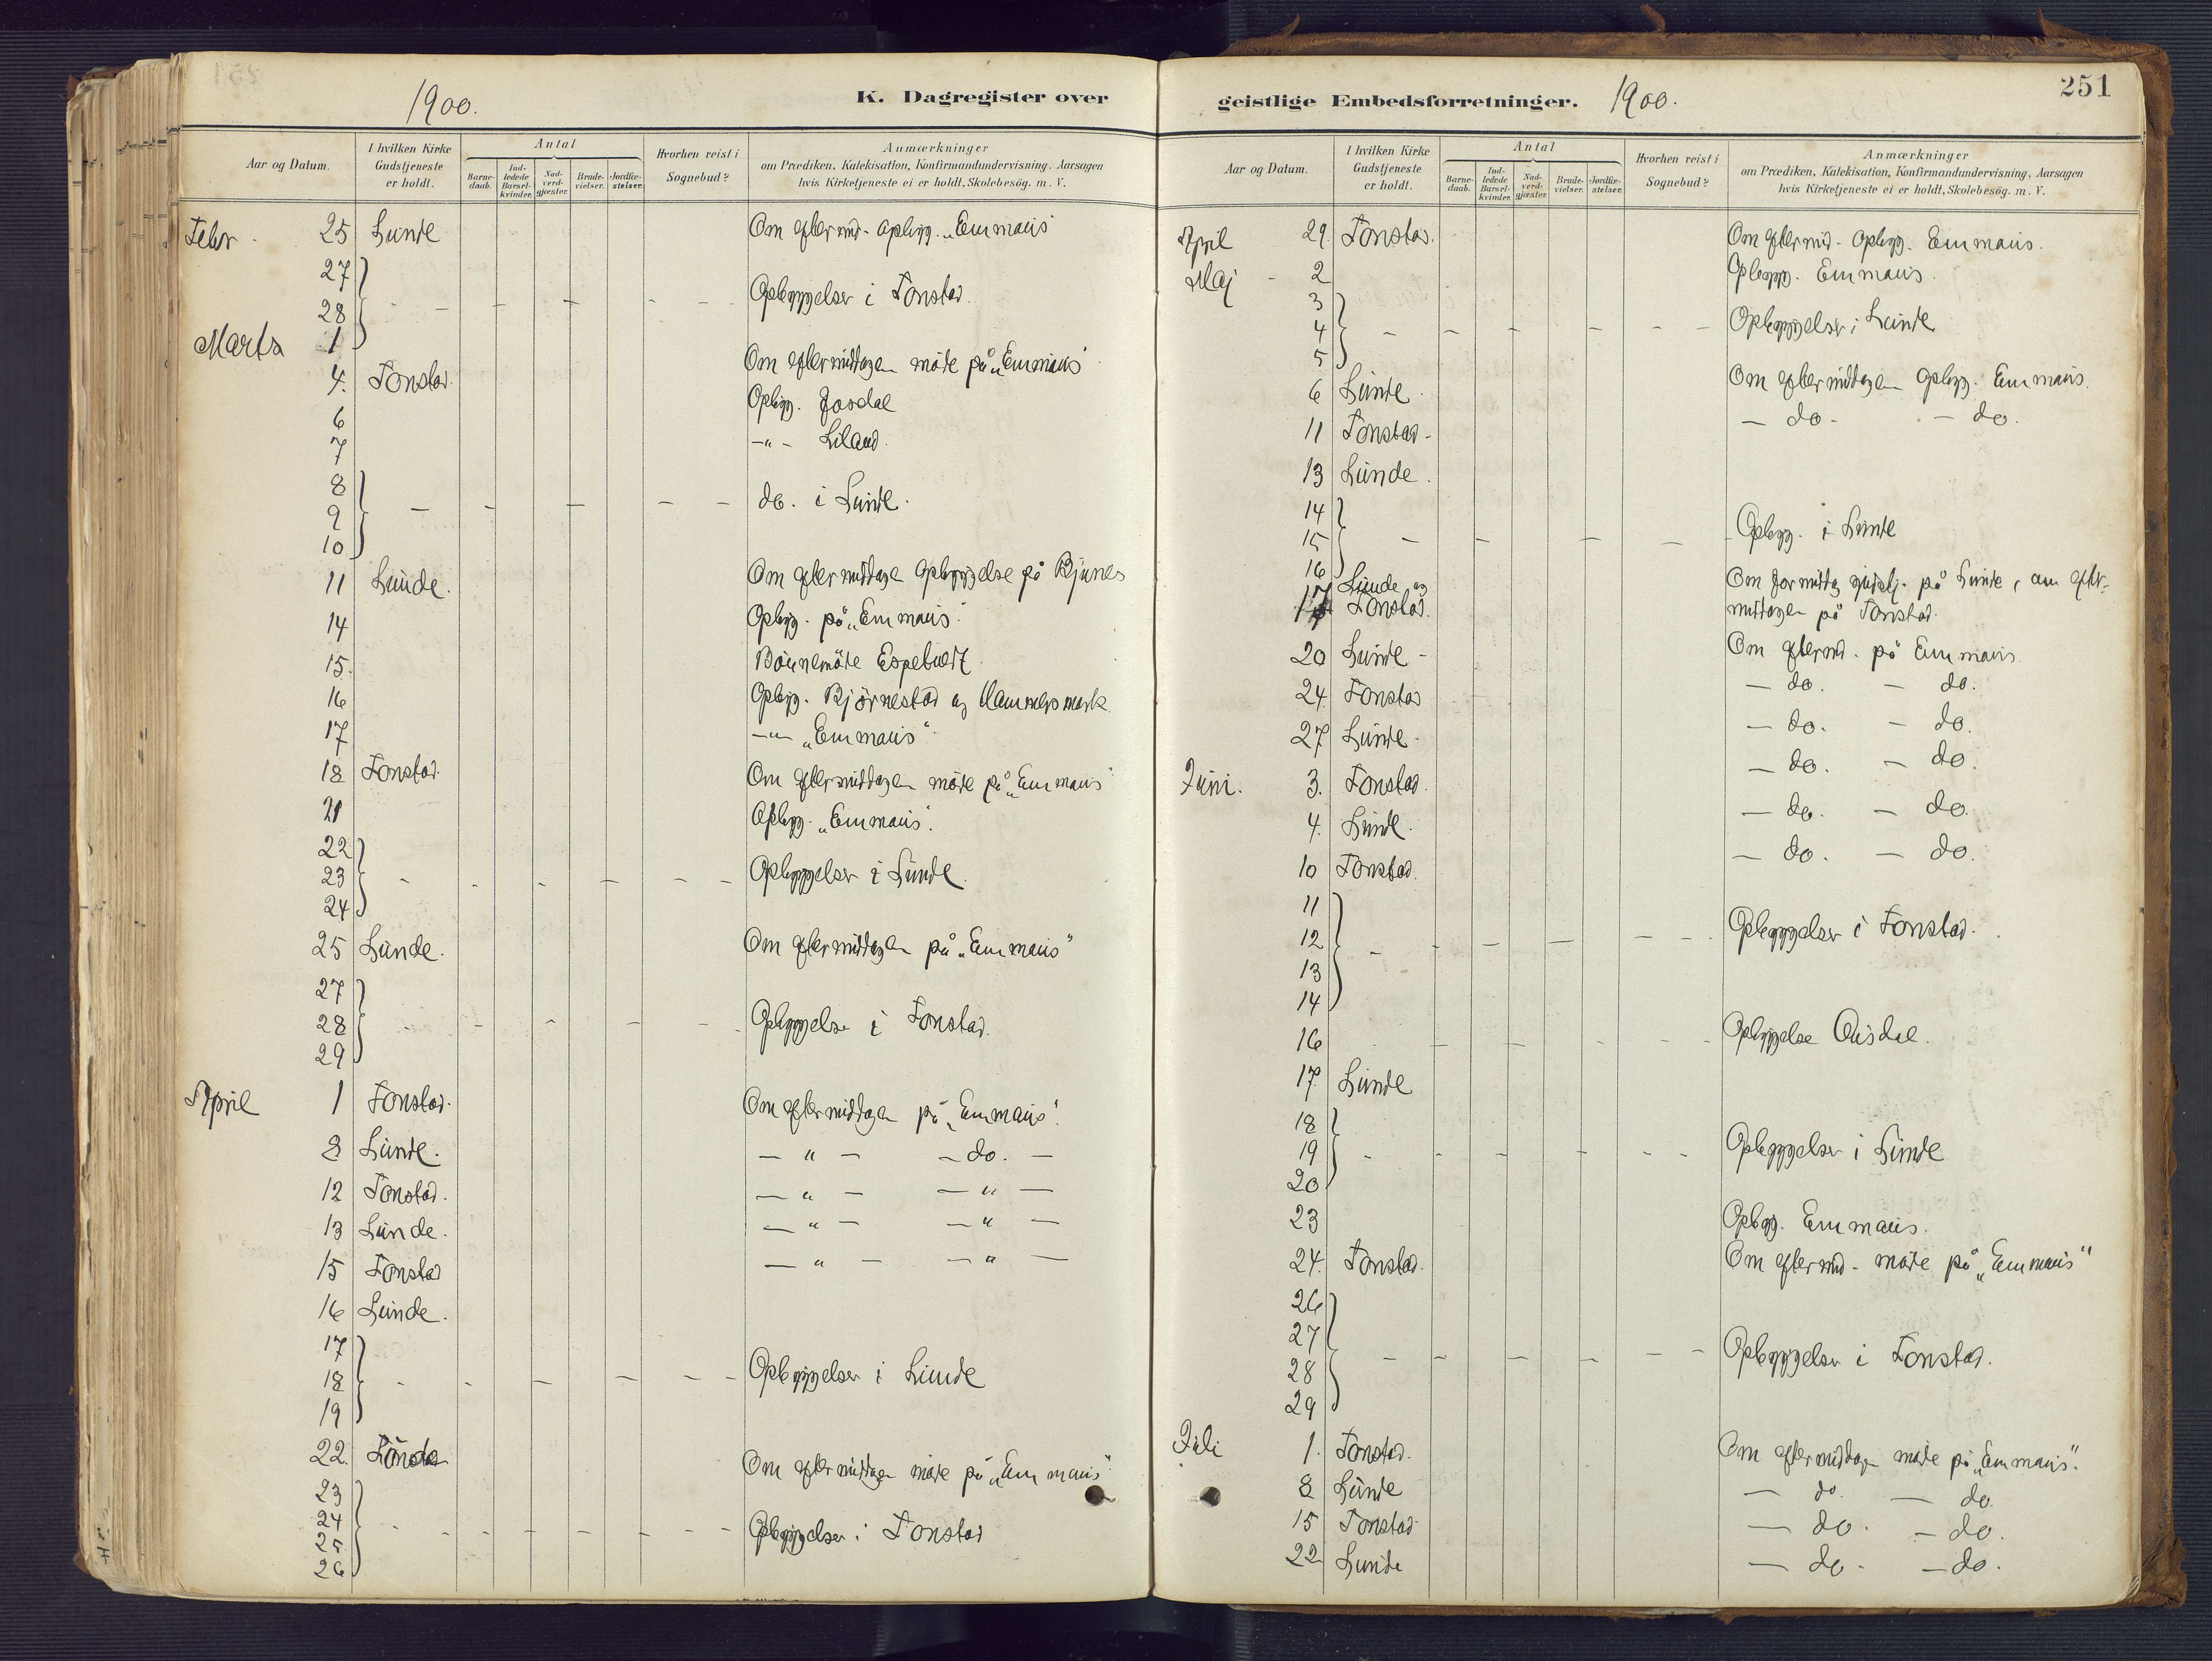 1900.
K. Dagregister over
Aar og Datum.
I hvilken Kirke Gudstjeneste er holdt.
Antal
Barnedaab.
Indledede Barselkvinder.
Nadverdgjæster.
Brudevielser.
Jordfæstelser.
Hvorhen reist i Sognebud?
Anmærkninger
om Prædiken, Katekisation, Konfirmandundervisning, Aarsagen
hvis Kirketjeneste ei er holdt, Skolebesög. m. V.
Febr. 25 Lunde Om eftermid. opbygg. "Emmaus"
27
28 Opbyggelser i Tonstad
Marts 1
4. Tonstad. Om eftermiddagen möte på "Emmaus"
6 Opbyg. Josdal
7 -"- Liland.
8
9 do. i Lunde.
10
11 Lunde. Om eftermiddagen opbyggelse på Bjunes
14 Opbyg. på "Emmaus".
15. Espetvedt
16 Opbyg. Björnestad og Hammersmark
17 -"- "Emmaus"
18 Tonstad. Om eftermiddagen möte på "Emmaus"
21 Opbyg. "Emmaus".
22
23 Opbyggelser i Lunde.
24
25 Lunde. Om eftermiddagen på "Emmaus"
27
28 Opbyggelse i Tonstad.
29
April 1 Tonstad. Om eftermiddagen på "Emmaus".
8 Lunde. — " — — do. —
12 Tonstad. — " — — " —
13 Lunde. — " — — " —
15 Tonstad — " — — " —
16 Lunde.
17
18 Opbyggelser i Lunde
19
22. Om eftermiddagen möte på "Emmaus"
23
24
25 Opbyggelser i Tonstad
26
251
geistlige Embedsforretninger. 1900.
Aar og Datum.
I hvilken Kirke Gudstjeneste er holdt.
Antal
Barnedaab.
Indledede Barselkvinder.
Nadverdgjæster.
Brudevielser.
Jordfæstelser.
Hvorhen reist i Sognebud?
Anmærkninger
om Prædiken, Katekisation, Konfirmandundervisning, Aarsagen
hvis Kirketjeneste ei er holdt, Skolebesög. m. V.
April 29. Tonstad. Om eftermid. opbyg. Emmaus.
Maj 2 Opbygg. Emmaus.
3
4 Opbyggelser i Lunde
5
6 Lunde. Om eftermiddagen opbyg. Emmaus.
11 Tonstad — do. — do.
13 Lunde.
14
15 Opbyg. i Lunde
16
17 Lunde og Tonstad. Om formiddag gudstj. på Lunde, om efter-
middagen på Tonstad.
20 Lunde Om eftermd. på Emmaus
24. Tonstad — do. — do.
27 Lunde — do. — do.
Juni. 3. Tonstad. — do. — do.
4. Lunde. — do. — do.
10 Tonstad. — do. — do.
11
12 Opbyggelser i Tonstad.
13
14
16 Opbyggelse Ousdal.
17. Lunde
18
19 Opbyggelser i Lunde
20
23 Opbyg. Emmaus.
24. Tonstad. Om eftermd. möte på "Emmaus"
26
27
28 Opbyggelser i Tonstad.
29
Juli 1. Tonstad. Om eftermiddagen möte på "Emmaus".
8 Lunde — do. — do.
15 Tonstad — do. — do.
22 Lunde — do. — do.